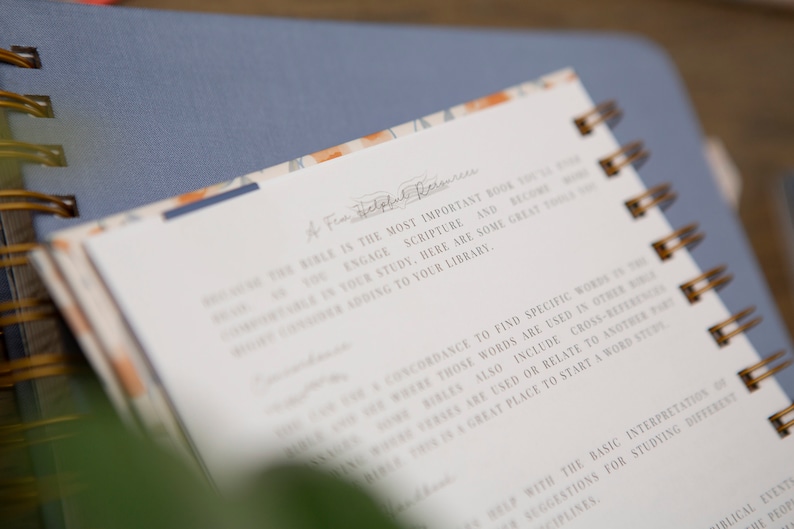 A Few Helpful Resources
BECAUSE THE BIBLE IS THE MOST IMPORTANT BOOK YOU'LL EVER
READ, AS YOU ENGAGE SCRIPTURE AND BECOME MORE
COMFORTABLE IN YOUR STUDY, HERE ARE SOME GREAT TOOLS YOU
MIGHT CONSIDER ADDING TO YOUR LIBRARY.
Concordance
YOU CAN USE A CONCORDANCE TO FIND SPECIFIC WORDS IN THE
BIBLE AND SEE WHERE THOSE WORDS ARE USED IN OTHER BIBLE
SOME BIBLES ALSO INCLUDE CROSS-REFERENCES
WHERE VERSES ARE USED OR RELATE TO ANOTHER PART
BIBLE. THIS IS A GREAT PLACE TO START A WORD STUDY.
Handbook
HELP WITH THE BASIC INTERPRETATION OF
SUGGESTIONS FOR STUDYING DIFFERENT
BIBLICAL
THE